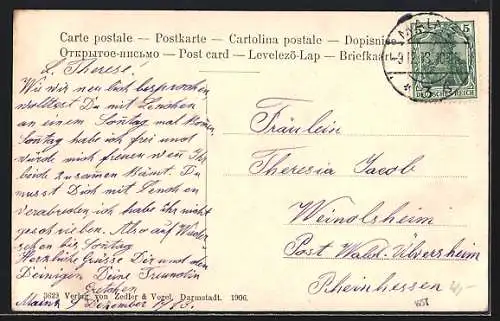 Carte postale — Postkarte — Cartolina postale — Dopisnice
Открытое-письмо — Post card — Levelező-Lap — Briefkaart
5 5
DEUTSCHES REICH
MAINZ
* 3 *
L. Therese!
Wie wir neulich besprochen
wolltest Du mit Lenchen
an einem Sonntag mal kommen,
Sonntag habe ich frei und
würde mich freuen wen Ihr
beide zusamen kämt. Du
musst Dich mit Lenchen
verabreden ich habe ihr nicht
geschrieben. Also auf Wieder-
sehen bis Sonntag
Herzliche Grüsse Dir und den
Deinigen Deine Freundin
Gretchen
Mainz 9 Dezember
Fräulein
Theresia Jacob
Weinolsheim
Post Wald-Ülversheim
Rheinhessen
3623 Verlag von Zedler & Vogel, Darmstadt. 1906.